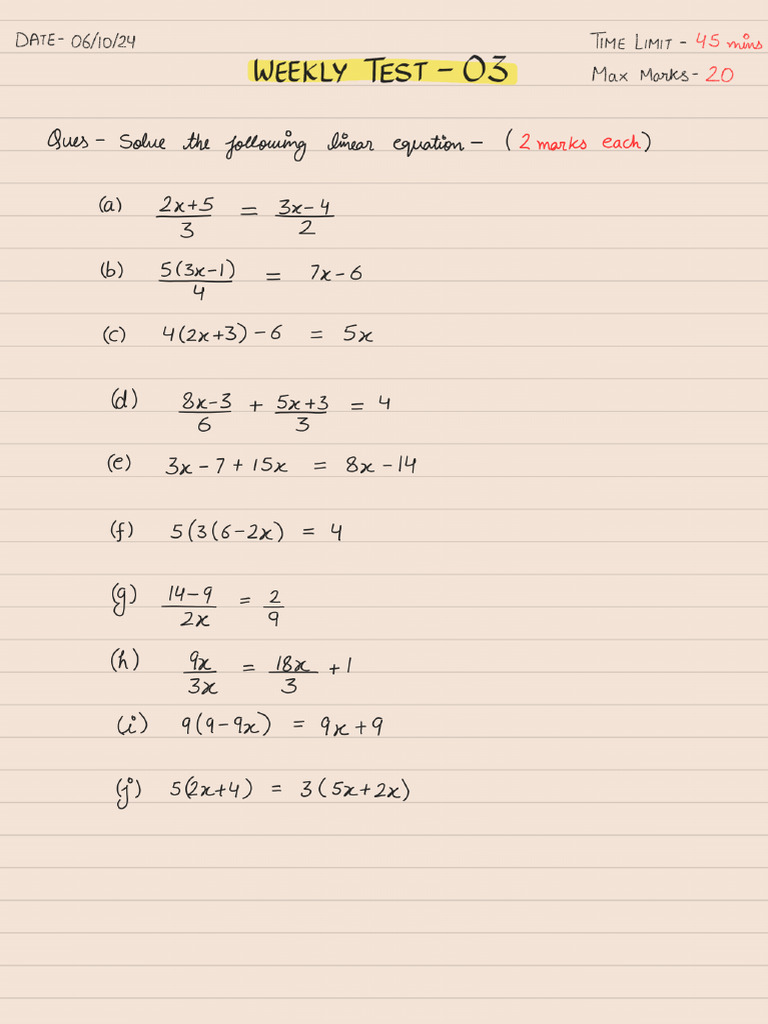 DATE- 06/10/24
TIME LIMIT - 45 mins
WEEKLY TEST - 03
MAX MARKS- 20
Ques - Solve the following linear equation - (2 marks each)
(a) (2x+5)/3 = (3x-4)/2
(b) 5(3x-1)/4 = 7x-6
(c) 4(2x+3)-6 = 5x
(d) (8x-3)/6 + (5x+3)/3 = 4
(e) 3x-7+15x = 8x-14
(f) 5(3(6-2x) = 4
(g) (14-9)/2x = 2/9
(h) 9x/3x = 18x/3 +1
(i) 9(9-9x) = 9x+9
(j) 5(2x+4) = 3(5x+2x)